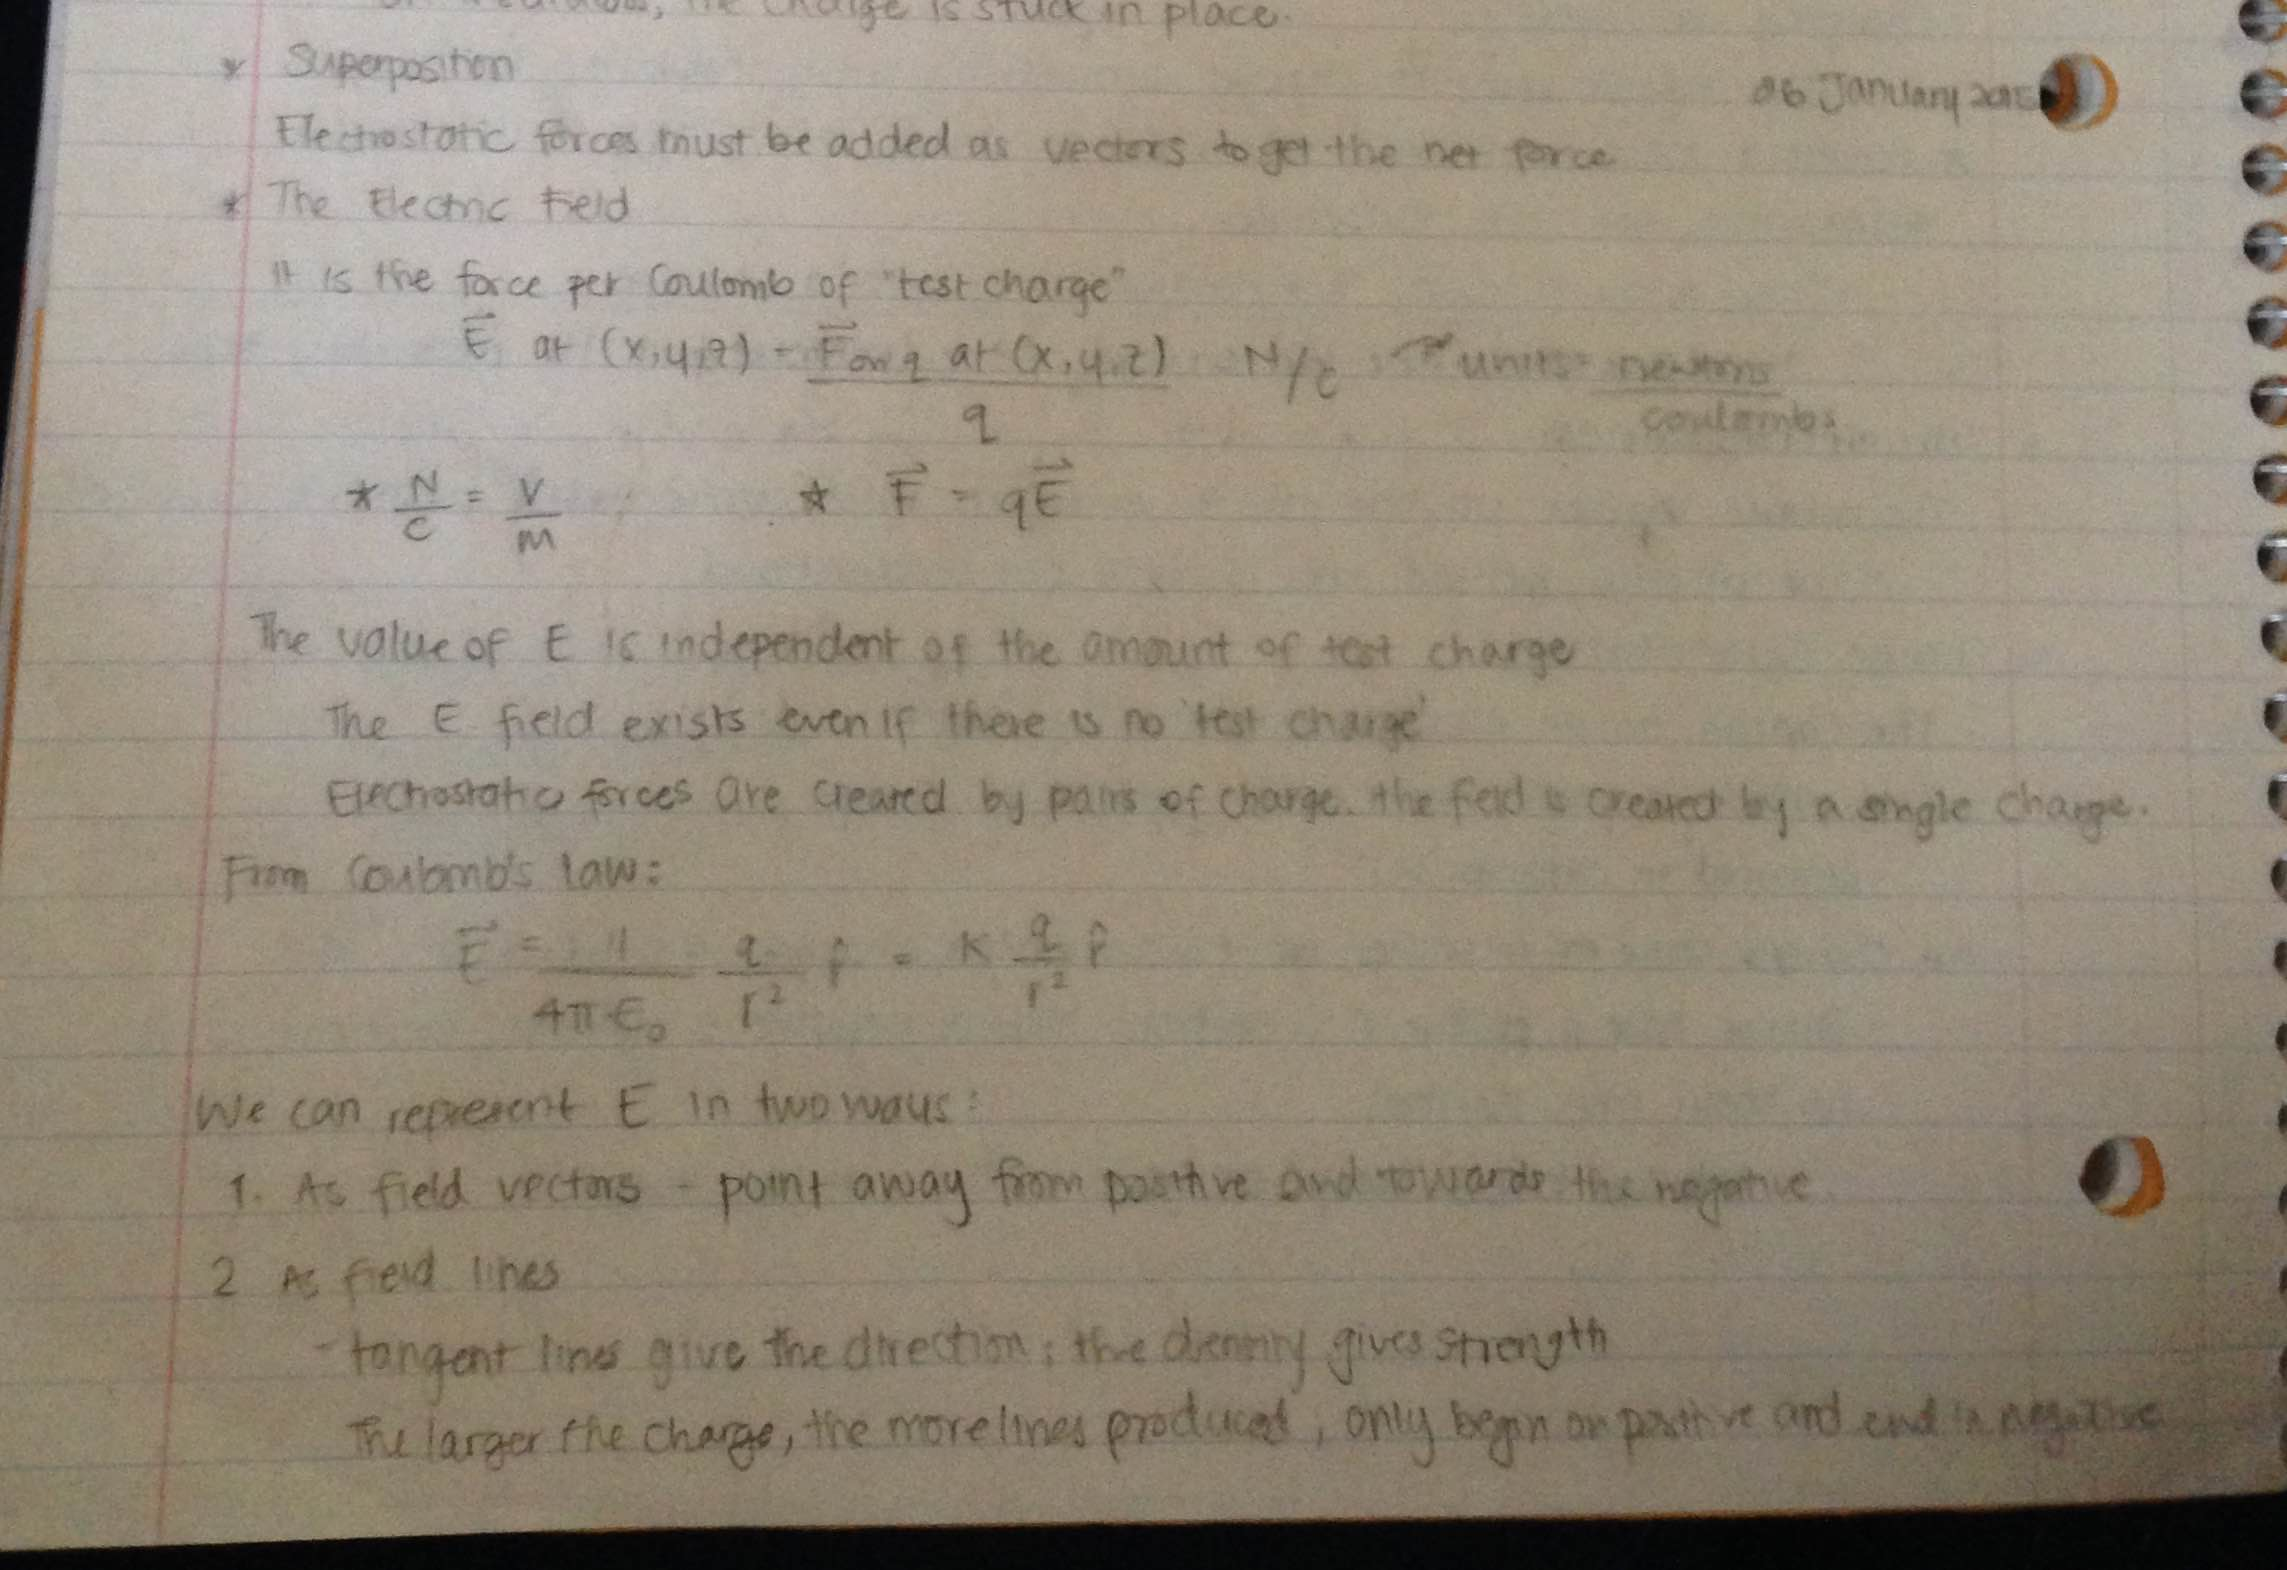 the charge is stuck in place.
* Superposition
06 January 2015
Electrostatic forces must be added as vectors to get the net force
* The Electric Field
It is the force per Coulomb of "test charge"
E⃗ at (x,y,z) = F⃗ on q at (x,y,z) / q N/C units = newtons / coulombs
* N/C = V/m * F⃗ = qE⃗
The value of E is independent of the amount of test charge
The E field exists even if there is no 'test charge'
Electrostatic forces are created by pairs of charge. the field is created by a single charge.
From Coulomb's law:
E⃗ = 1/4πϵ₀ q/r² r̂ = K q/r² r̂
We can represent E in two ways:
1. As field vectors - point away from positive and towards the negative
2 As field lines
- tangent lines give the direction; the density gives strength
The larger the charge, the more lines produced, only begin on positive and end in negative